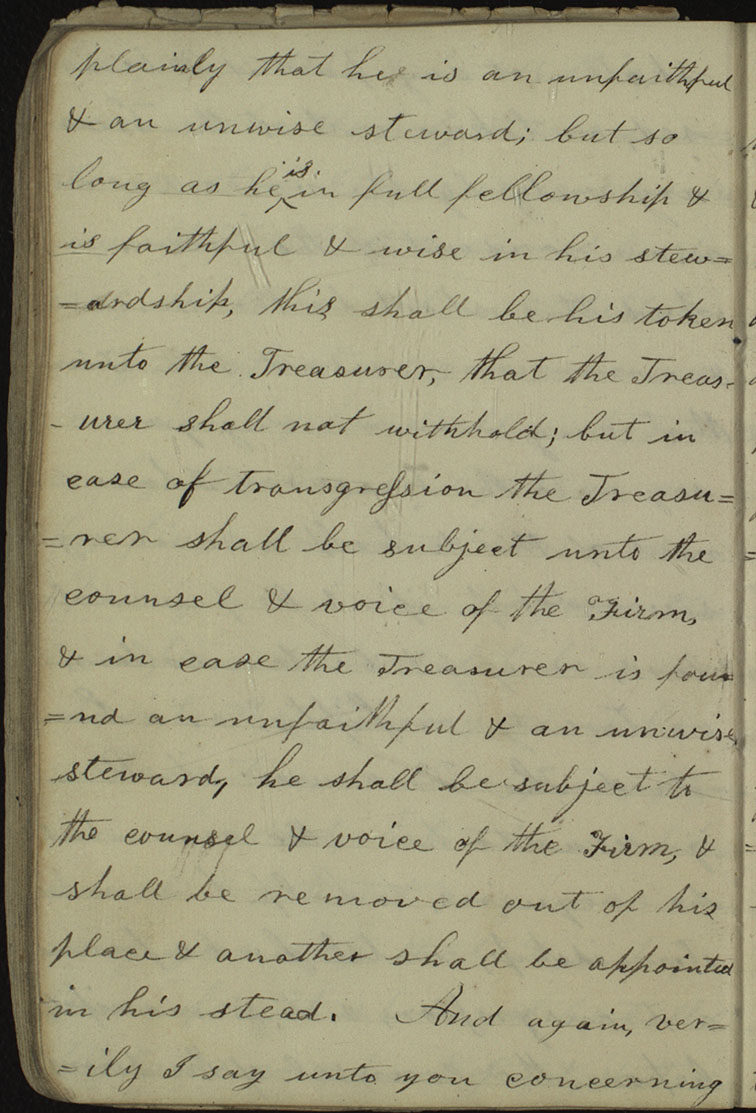 plainly that he is an unfaithful
& an unwise steward; but so
long as he ^is in full fellowship &
is faithful & wise in his stew=
=ardship, this shall be his token
unto the Treasurer, that the Treas-
-urer shall not withhold; but in
case of transgression the Treasu=
=rer shall be subject unto the
counsel & voice of the Firm,
& in case the Treasurer is fou=
=nd an unfaithful & an unwise
steward, he shall be subject to
the counsel & voice of the Firm, &
shall be removed out of his
place & another shall be appointed
in his stead. And again, ver=
=ily I say unto you concerning